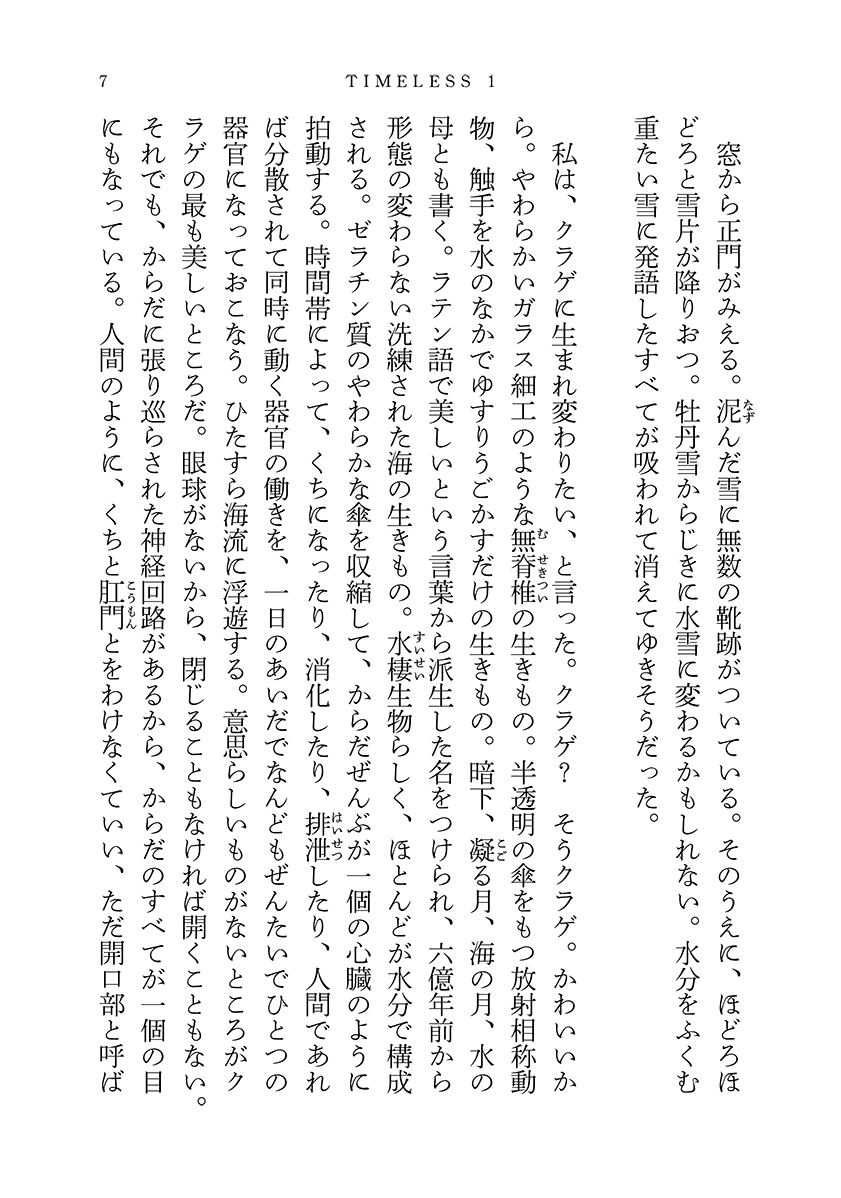 7
TIMELESS 1
窓から正門がみえる。泥んだ雪に無数の靴跡がついている。そのうえに、ほどろほ
なず
どろと雪片が降りおつ。牡丹雪からじきに水雪に変わるかもしれない。水分をふくむ
重たい雪に発語したすべてが吸われて消えてゆきそうだった。
私は、クラゲに生まれ変わりたい、と言った。クラゲ？　そうクラゲ。かわいいか
ら。やわらかいガラス細工のような無脊椎の生きもの。半透明の傘をもつ放射相称動
む せきつい
物、触手を水のなかでゆすりうごかすだけの生きもの。暗下、凝る月、海の月、水の
こご
母とも書く。ラテン語で美しいという言葉から派生した名をつけられ、六億年前から
形態の変わらない洗練された海の生きもの。水棲生物らしく、ほとんどが水分で構成
すいせい
される。ゼラチン質のやわらかな傘を収縮して、からだぜんぶが一個の心臓のように
拍動する。時間帯によって、くちになったり、消化したり、排泄したり、人間であれ
はいせつ
ば分散されて同時に動く器官の働きを、一日のあいだでなんどもぜんたいでひとつの
器官になっておこなう。ひたすら海流に浮遊する。意思らしいものがないところがク
ラゲの最も美しいところだ。眼球がないから、閉じることもなければ開くこともない。
それでも、からだに張り巡らされた神経回路があるから、からだのすべてが一個の目
にもなっている。人間のように、くちと肛門とをわけなくていい、ただ開口部と呼ば
こうもん